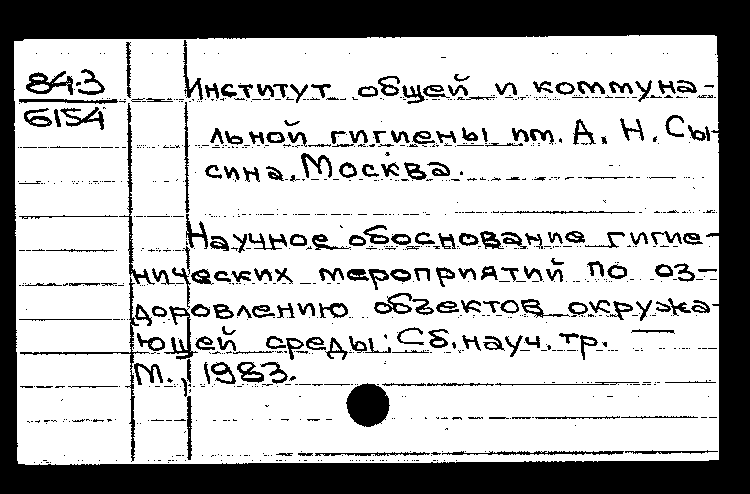 84-3
6154
Институт общей и коммуна-
льной гигиены им. А. Н. Сы-
сина. Москва.
Научное обоснование гигие-
нических мероприятий по оз-
доровлению объектов окружа-
ющей среды: Сб. науч. тр. —
М., 1983.